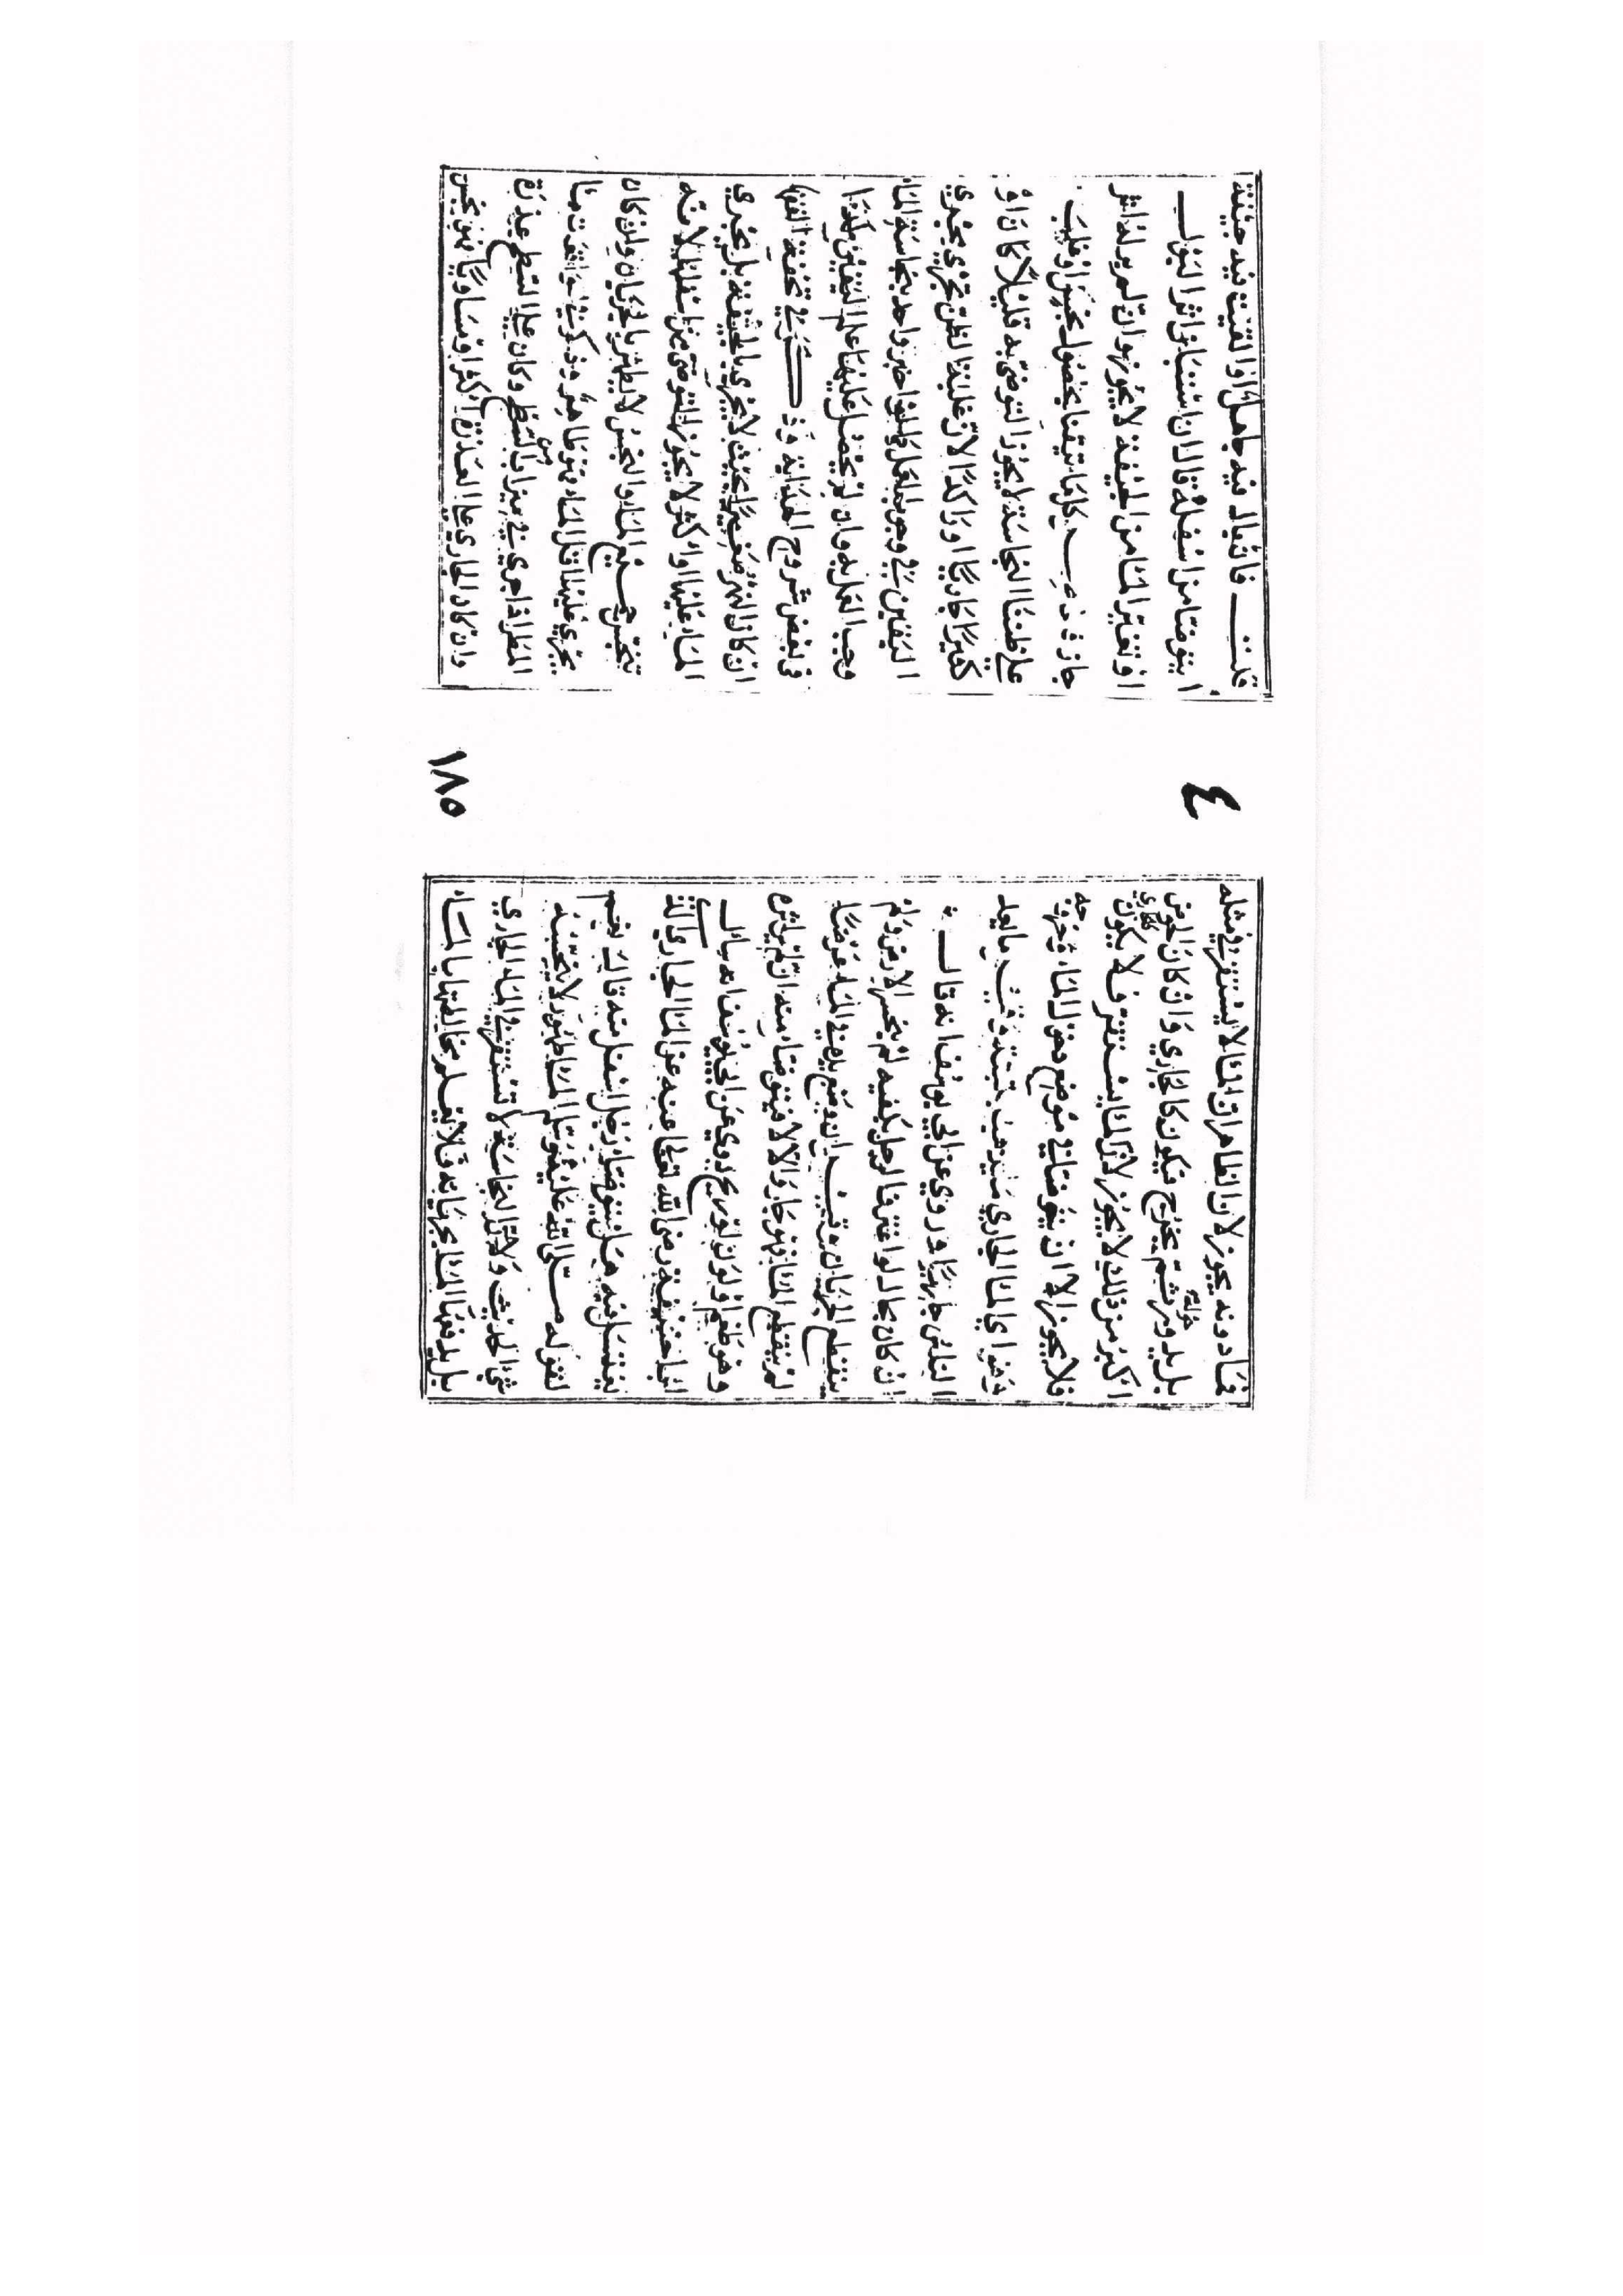 فما دونه يجوز لان الظاهر ان الماء لا يستقر في مثله
بل يدور حوله ثم يخرج فيكون كالجاري وان كان الحوض
اكبر من ذلك لا يجوز لان الماء يستقر فلا يكون كالجاري
فلا يجوز الا ان يتوضأ في موضع دخول الماء وخروجه
وهو اي الماء الجاري ما يذهب بتبنة وقيل ما يعد
الناس جاريا وروي عن ابي يوسف انه قال
ان كان بحال لو اغترف الرجل بكفيه لم ينحسر الارض ولم
ينقطع الجريان وقيل ان وضع يده في الماء عرضا
لم ينقطع الماء فهو جار والا لا فيتوضأ منه ان لم ير اثره
وهو طعم او لون او ريح روي عن ابي يوسف انه سأل
ابا حنيفة رضي الله تعالى عنه عن الماء الجاري الذي
يغتسل فيه هل يتوضأ رجل اسفل منه قال نعم
لقوله صلى الله عليه وسلم الماء طهور لا ينجسه
شئ الحديث ولان النجاسة لا تستقر في الماء الجاري
بل يدفعها الماء بجريانه فلا يعلم مخالطتها بالماء
٤
١٨٥
قلت فان بال فيه جاهل او القيت فيه جيفة
ايتوضأ من اسفله قال ان استبان اثر البول
او تغير الماء من الجيفة لا يجوز وان لم ير له اثر
جاز كلما تيقنا بحصول نجس او غلب
على ظننا النجاسة لا يجوز التوضي به قليلا كان او
كثيرا جاريا او راكدا لان غلبة الظن تجري مجري
اليقين في وجوب العمل كما لو اخبر واحد بنجاسة الماء
وجب العمل به وان لم يحصل عليها علم اليقين هكذا
في بعض شروح الهداية وذكر في تحفة الفقها
ان كان النهر صغيرا بحيث لا يجري بالجيفة بل يجري
الماء عليها او اكثره لا يجوز التوضي من اسفلها لانه
تنجس جميع الماء والنجس لا يطهر بالجريان وان كان
يجري عليها اقل الماء فهو طاهر وذكر في
المطر اذا جري في ميزاب من السطح وكان على السطح عذرة
وان كان الجاري على العذرة اكثر او مساويا فهو نجس